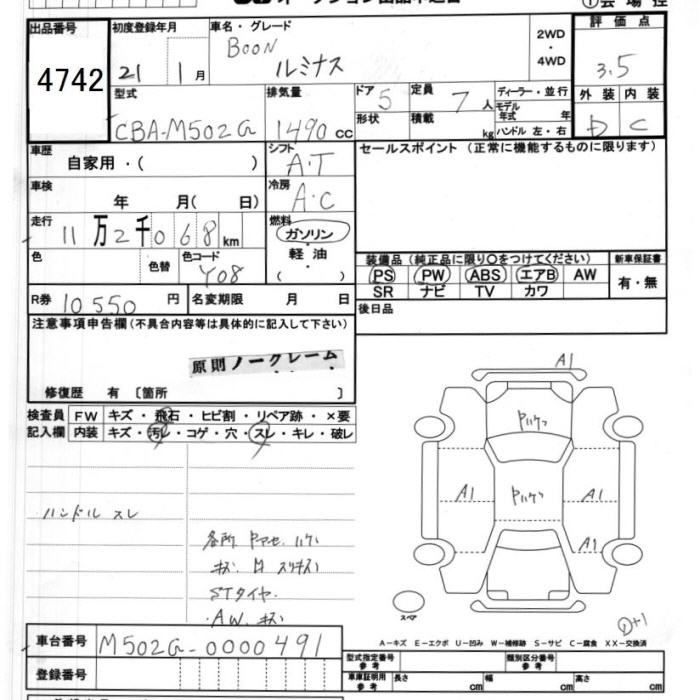 出品番号 初度登録年月 車名・グレード 2WD・4WD 評価点
4742 21 1月 BOON ルミナス 3.5
型式 排気量 ドア 5 定員 7人 ディーラー・並行 外装 内装
CBA-M502G 1490cc 形状 積載 kg モデル年式 年 D C
ハンドル 左・右
車歴 シフト セールスポイント (正常に機能するものに限ります)
自家用・( ) A・T
車検 冷房
年 月( 日) A・C
走行 燃料
11万2千068km ガソリン
色 色替 色コード 軽油 装備品 (純正品に限り○をつけてください) 新車保証書
Y08 ( ) PS PW ABS エアB AW 有・無
SR ナビ TV カワ
R券 10550円 名変期限 月 日 後日品
注意事項申告欄(不具合内容等は具体的に記入して下さい)
原則ノークレーム
修復歴 有 〔箇所 〕
検査員 FW キズ・飛石・ヒビ割・リペア跡・×要
記入欄 内装 キズ・汚レ・コゲ・穴・スレ・キレ・破レ
A1
Pハゲ
A1 Pハゲ A1
A1
ハンドル スレ
STタイヤ
A.W. キズ
スペア
②+1
A-キズ E-エクボ U-凹み W-補修跡 S-サビ C-腐食 XX-交換済
車台番号 M502G-0000491
型式指定番号 参考 類別区分番号 参考
登録番号
車庫証明用 参考 長さ cm 幅 cm 高さ cm